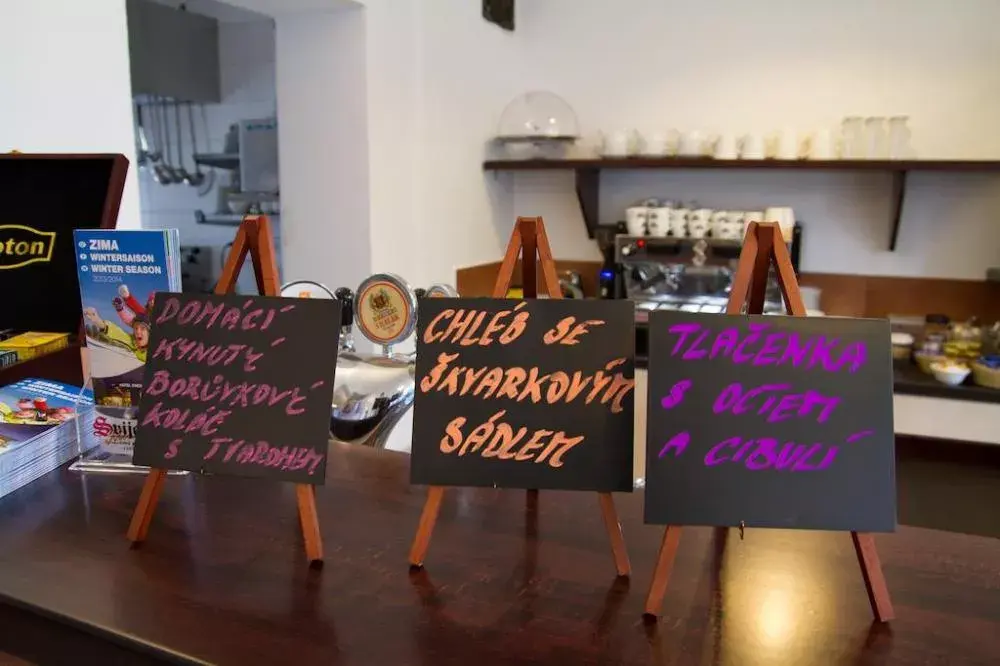 ZIMA
WINTERSAISON
WINTER SEASON
2013/2014
DOMÁCÍ
KYNUTÝ
BORŮVKOVÝ
KOLÁČ
S TVAROHEM
CHLÉB SE
ŠKVARKOVÝM
SÁDLEM
TLAČENKA
S OCTEM
A CIBULÍ
SVIJANY